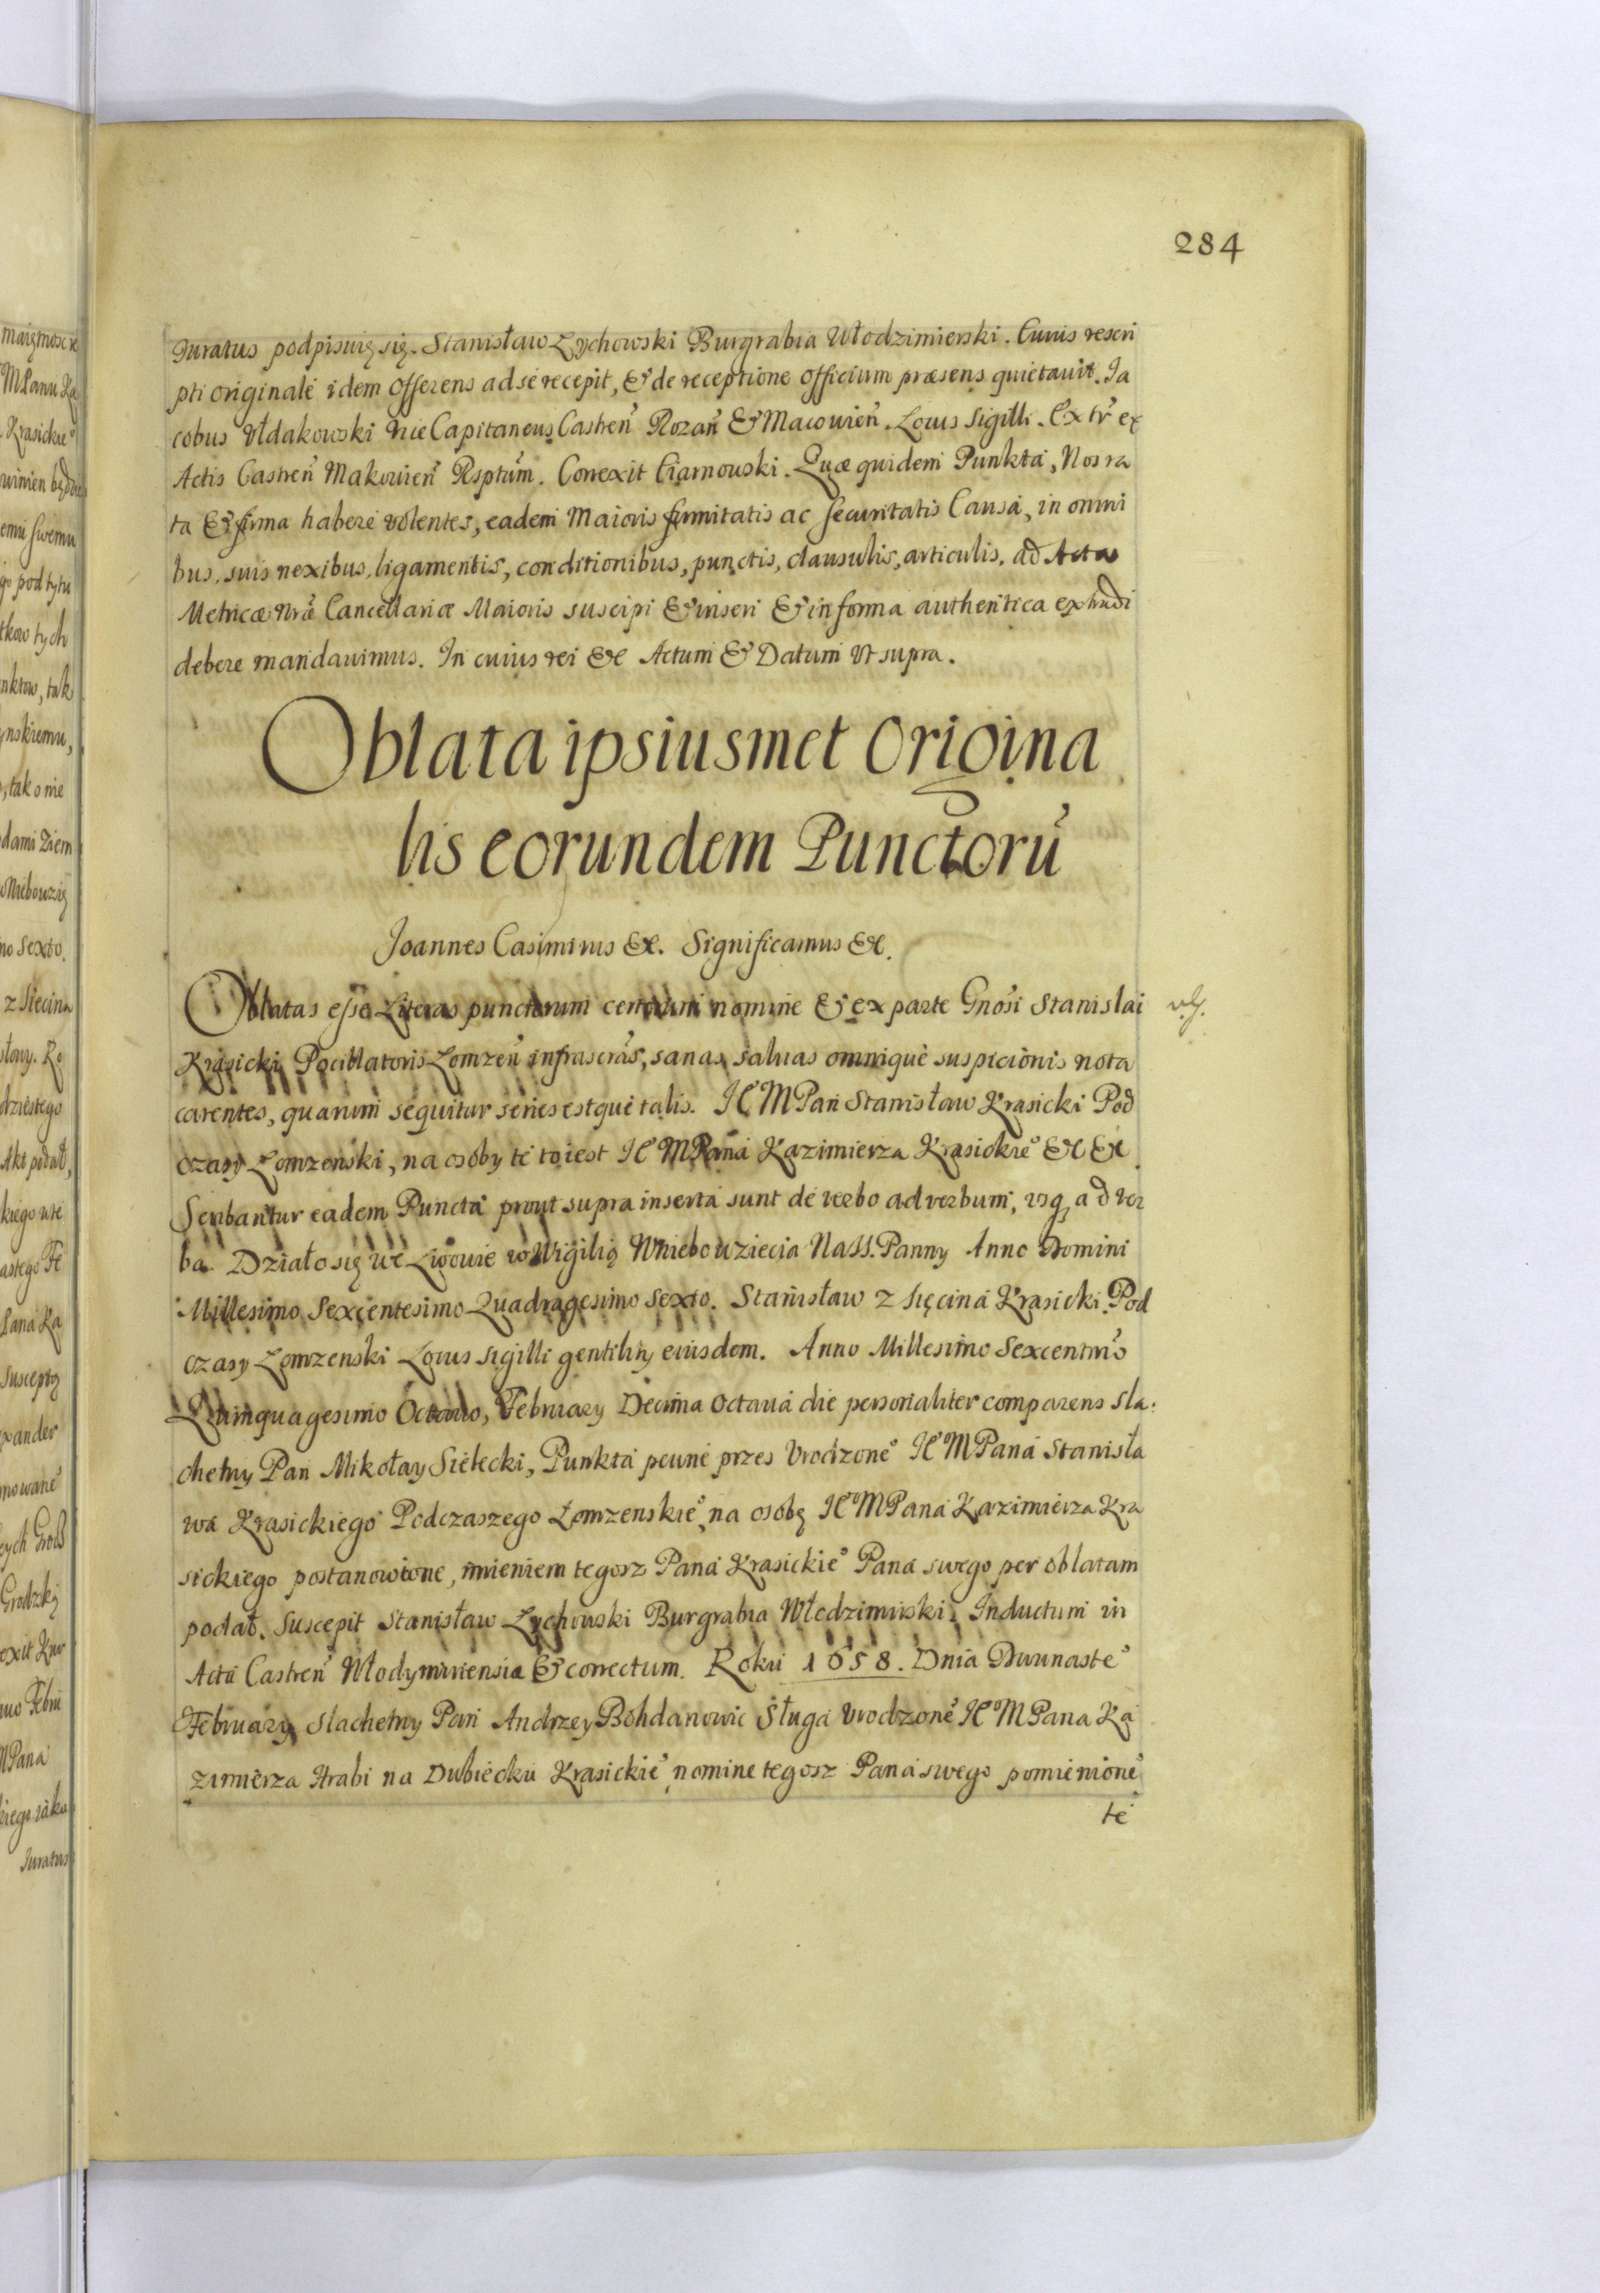 284
Iuratus podpisuię się. Stanisław Lychowski Burgrabia Włodzimierski. Cuius rescri
pti originale idem offerens ad se recepit, & de receptione officium præsens quietauit. Ia
cobus Vłdakowski Vice Capitaneus Castreñ Rozañ & Macouień. Locus sigilli. Ex tr̃ ex
Actis Castreñ Makouieñ Rsptũm. Correxit Ciarnowski. Quæ quidem Punkta, Nos ra
ta & firma habere volentes, eadem Maioris firmitatis ac securitatis Causá, in omni
bus, suis nexibus, ligamentis, conditionibus, punctis, clausulis, articulis, ad Acta
Metricæ Nræ Cancellariæ Maioris suscipi & inseri & in forma authentica extradi
debere mandauimus. In cuius rei &c Actum & Datum Vt supra.
Oblata ipsiusmet Origina
lis eorundem Punctorũ
Joannes Casimirus &c. Significamus &c.
Oblatas esse Literas punctorum certorum nomine & ex parte Gnosi Stanislai
Krasicki Pocillatoris Lomzeñ infrascrãs, sanas saluas omnique suspicionis nota
carentes, quarum sequitur series estque talis. Je͠ M Pan Stanisław Krasicki Pod
czasy Lomzenski, na osoby te to iest Je͠ M Pana Kazimierza Krasickie͠ &c &c
Scribantur eadem Puncta prout supra inserta sunt de verbo ad verbum, vsq, ad ver
ba. Działo się we Lwowie w Wigilią Wniebowziecia Nass. Panny Anno Domini
Millesimo Sexcentesimo Quadragesimo Sexto. Stanisław z Sięcina Krasicki Pod
czasy Lomzenski Locus sigilli gentility eiusdem. Anno Millesimo Sexcentm̃o
Quinquagesimo Octauo, February Decima Octaua die personaliter comparens sla
chetny Pan Mikołay Sielecki, Punkta peune przes Vrodzone͠ Je͠ M Pana Stanisła
wa Krasickiego Podczaszego Łomzenskie͠, na osobę Je͠ M Pana Kazimierza Kra
sickiego postanowione, imieniem tegosz Pana Krasickie͠ Pana swego per oblatam
podał. Suscepit Stanisław Lychowski Burgrabia Włodzimirski. Inductum in
Acta Castreñ Włodymiriensia & correctum. Roku 1658. Dnia Dwunaste͠
February, slachetny Pan Andrzey Bohdanowic Sługa Vrodzone͠ Je͠ M Pana Ka
zimierza Hrabi na Dubiecku Krasickie͠, nomine tegosz Pana swego pomienione͠
te